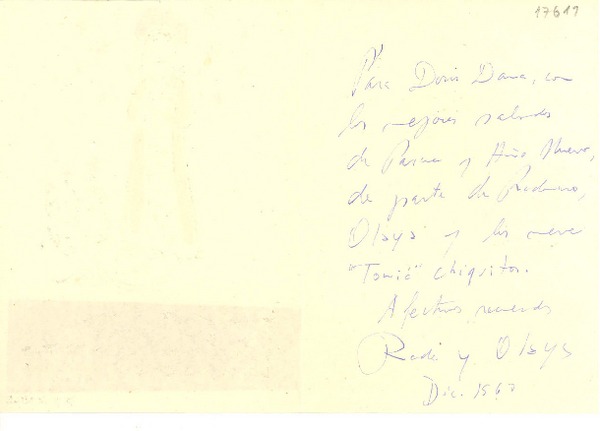 17611
Para Doris Dana, con
los mejores saludos
de Pascua y Año Nuevo,
de parte de Radomiro,
Olaya y los nueve
"Tomić" chiquitos.
Afectuosos recuerdos
y Olaya
Dic. 1960